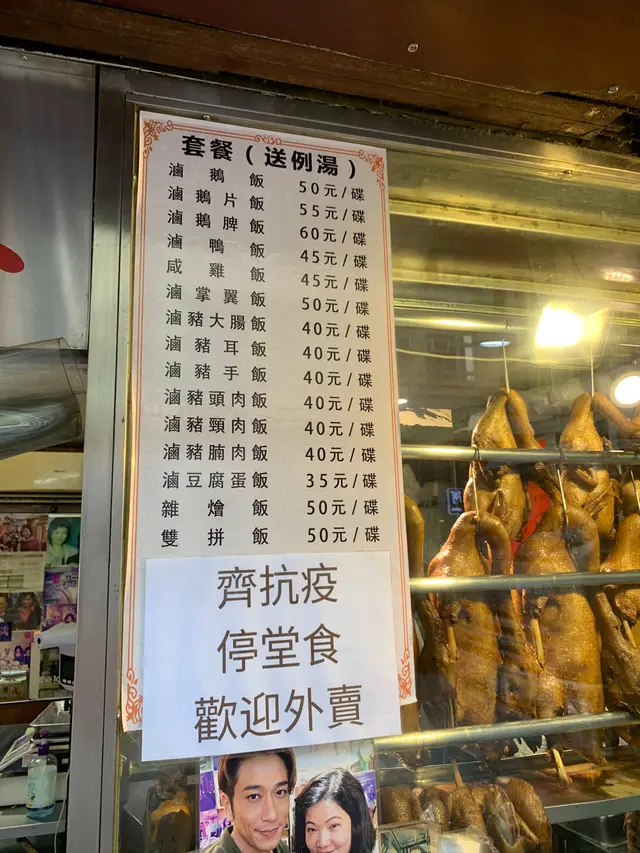 套餐(送例湯)
滷鵝飯 50元/碟
滷鵝片飯 55元/碟
滷鵝脾飯 60元/碟
滷鴨飯 45元/碟
咸雞飯 45元/碟
滷掌翼飯 50元/碟
滷豬大腸飯 40元/碟
滷豬耳飯 40元/碟
滷豬手飯 40元/碟
滷豬頭肉飯 40元/碟
滷豬頸肉飯 40元/碟
滷豬腩肉飯 40元/碟
滷豆腐蛋飯 35元/碟
雜燴飯 50元/碟
雙拼飯 50元/碟
齊抗疫
停堂食
歡迎外賣